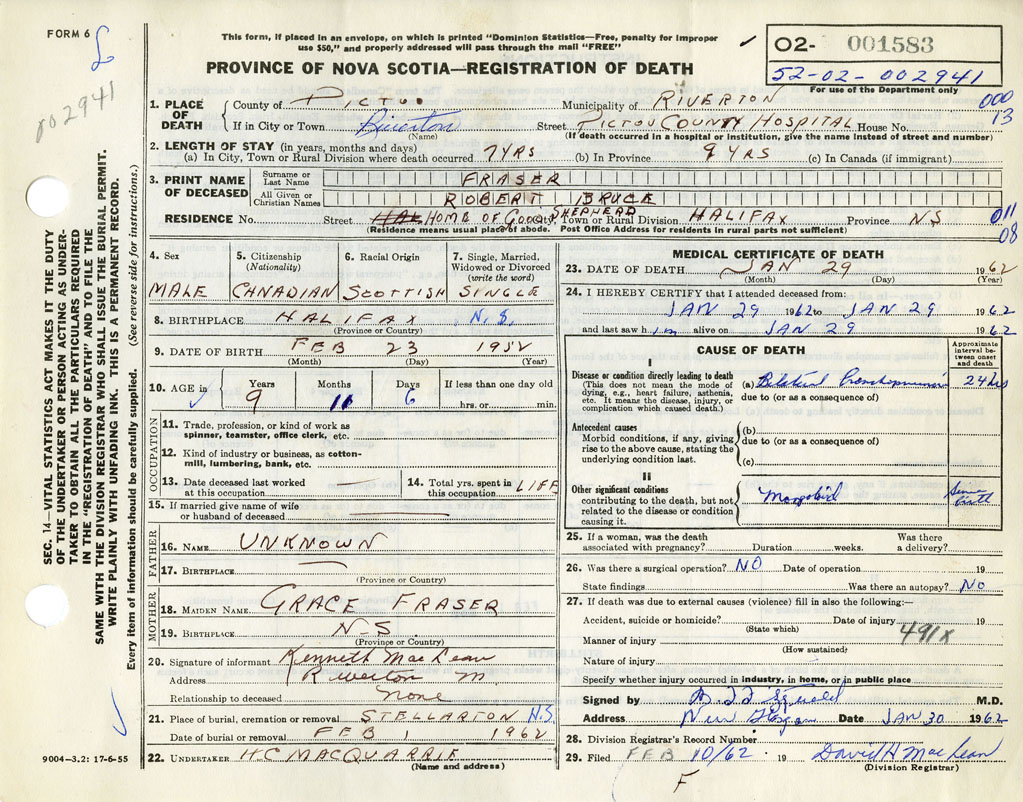 FORM 6
This form, if placed in an envelope, on which is printed "Dominion Statistics—Free, penalty for improper
use $50," and properly addressed will pass through the mail "FREE"
PROVINCE OF NOVA SCOTIA—REGISTRATION OF DEATH
02- 001583
52-02-002941
For use of the Department only
002941
000
13
1. PLACE OF DEATH
County of PICTOU Municipality of RIVERTON
If in City or Town Riverton Street PICTOU COUNTY HOSPITAL House No.
(Name) (If death occurred in a hospital or institution, give the name instead of street and number)
2. LENGTH OF STAY (in years, months and days)
(a) In City, Town or Rural Division where death occurred 7 YRS (b) In Province 9 YRS (c) In Canada (if immigrant)
3. PRINT NAME OF DECEASED
Surname or Last Name FRASER
All Given or Christian Names ROBERT BRUCE
RESIDENCE No. Street HOME OF GOOD SHEPHERD City, Town or Rural Division HALIFAX Province N S
(Residence means usual place of abode. Post Office Address for residents in rural parts not sufficient)
011
08
4. Sex
MALE
5. Citizenship
(Nationality)
CANADIAN
6. Racial Origin
SCOTTISH
7. Single, Married,
Widowed or Divorced
(write the word)
SINGLE
8. BIRTHPLACE HALIFAX N.S.
(Province or Country)
9. DATE OF BIRTH FEB 23 1952
(Month) (Day) (Year)
10. AGE in Years Months Days If less than one day old
9 11 6 hrs. or min.
OCCUPATION
11. Trade, profession, or kind of work as
spinner, teamster, office clerk, etc.
12. Kind of industry or business, as cotton-
mill, lumbering, bank, etc.
13. Date deceased last worked
at this occupation
14. Total yrs. spent in
this occupation LIFE
15. If married give name of wife
or husband of deceased
FATHER
16. NAME UNKNOWN
17. BIRTHPLACE
(Province or Country)
MOTHER
18. MAIDEN NAME GRACE FRASER
19. BIRTHPLACE N-S.
(Province or Country)
20. Signature of informant Kenneth MacLean
Address Riverton
Relationship to deceased None
21. Place of burial, cremation or removal STELLARTON N.S
Date of burial or removal FEB 1 1962
22. UNDERTAKER H-C MACQUARRIE
(Name and address)
MEDICAL CERTIFICATE OF DEATH
23. DATE OF DEATH JAN 29 1962
(Month) (Day) (Year)
24. I HEREBY CERTIFY that I attended deceased from:
JAN 29 1962 to JAN 29 1962
and last saw him alive on JAN 29 1962
CAUSE OF DEATH
Approximate
interval be-
tween onset
and death
I
Disease or condition directly leading to death
(This does not mean the mode of
dying, e.g., heart failure, asthenia,
etc. It means the disease, injury, or
complication which caused death.)
(a) Bilateral bronchopneumonia 24 hrs
due to (or as a consequence of)
Antecedent causes
Morbid conditions, if any, giving
rise to the above cause, stating the
underlying condition last.
(b)
due to (or as a consequence of)
(c)
II
Other significant conditions
contributing to the death, but not
related to the disease or condition
causing it.
Mongoloid Since birth
25. If a woman, was the death
associated with pregnancy? Duration weeks. Was there
a delivery?
26. Was there a surgical operation? NO Date of operation 19
State findings Was there an autopsy? No
27. If death was due to external causes (violence) fill in also the following:—
Accident, suicide or homicide? Date of injury 19
(State which)
491X
Manner of injury
(How sustained)
Nature of injury
Specify whether injury occurred in industry, in home, or in public place
Signed by M.D.
Address New Glasgow Date JAN 30 1962
28. Division Registrar's Record Number
29. Filed FEB 10/62 19 David H MacLean
(Division Registrar)
F
SEC. 14—VITAL STATISTICS ACT MAKES IT THE DUTY
OF THE UNDERTAKER OR PERSON ACTING AS UNDER-
TAKER TO OBTAIN ALL THE PARTICULARS REQUIRED
IN THE "REGISTRATION OF DEATH" AND TO FILE THE
SAME WITH THE DIVISION REGISTRAR WHO SHALL ISSUE THE BURIAL PERMIT.
WRITE PLAINLY WITH UNFADING INK. THIS IS A PERMANENT RECORD.
Every item of information should be carefully supplied. (See reverse side for instructions.)
9004—3.2: 17-6-55